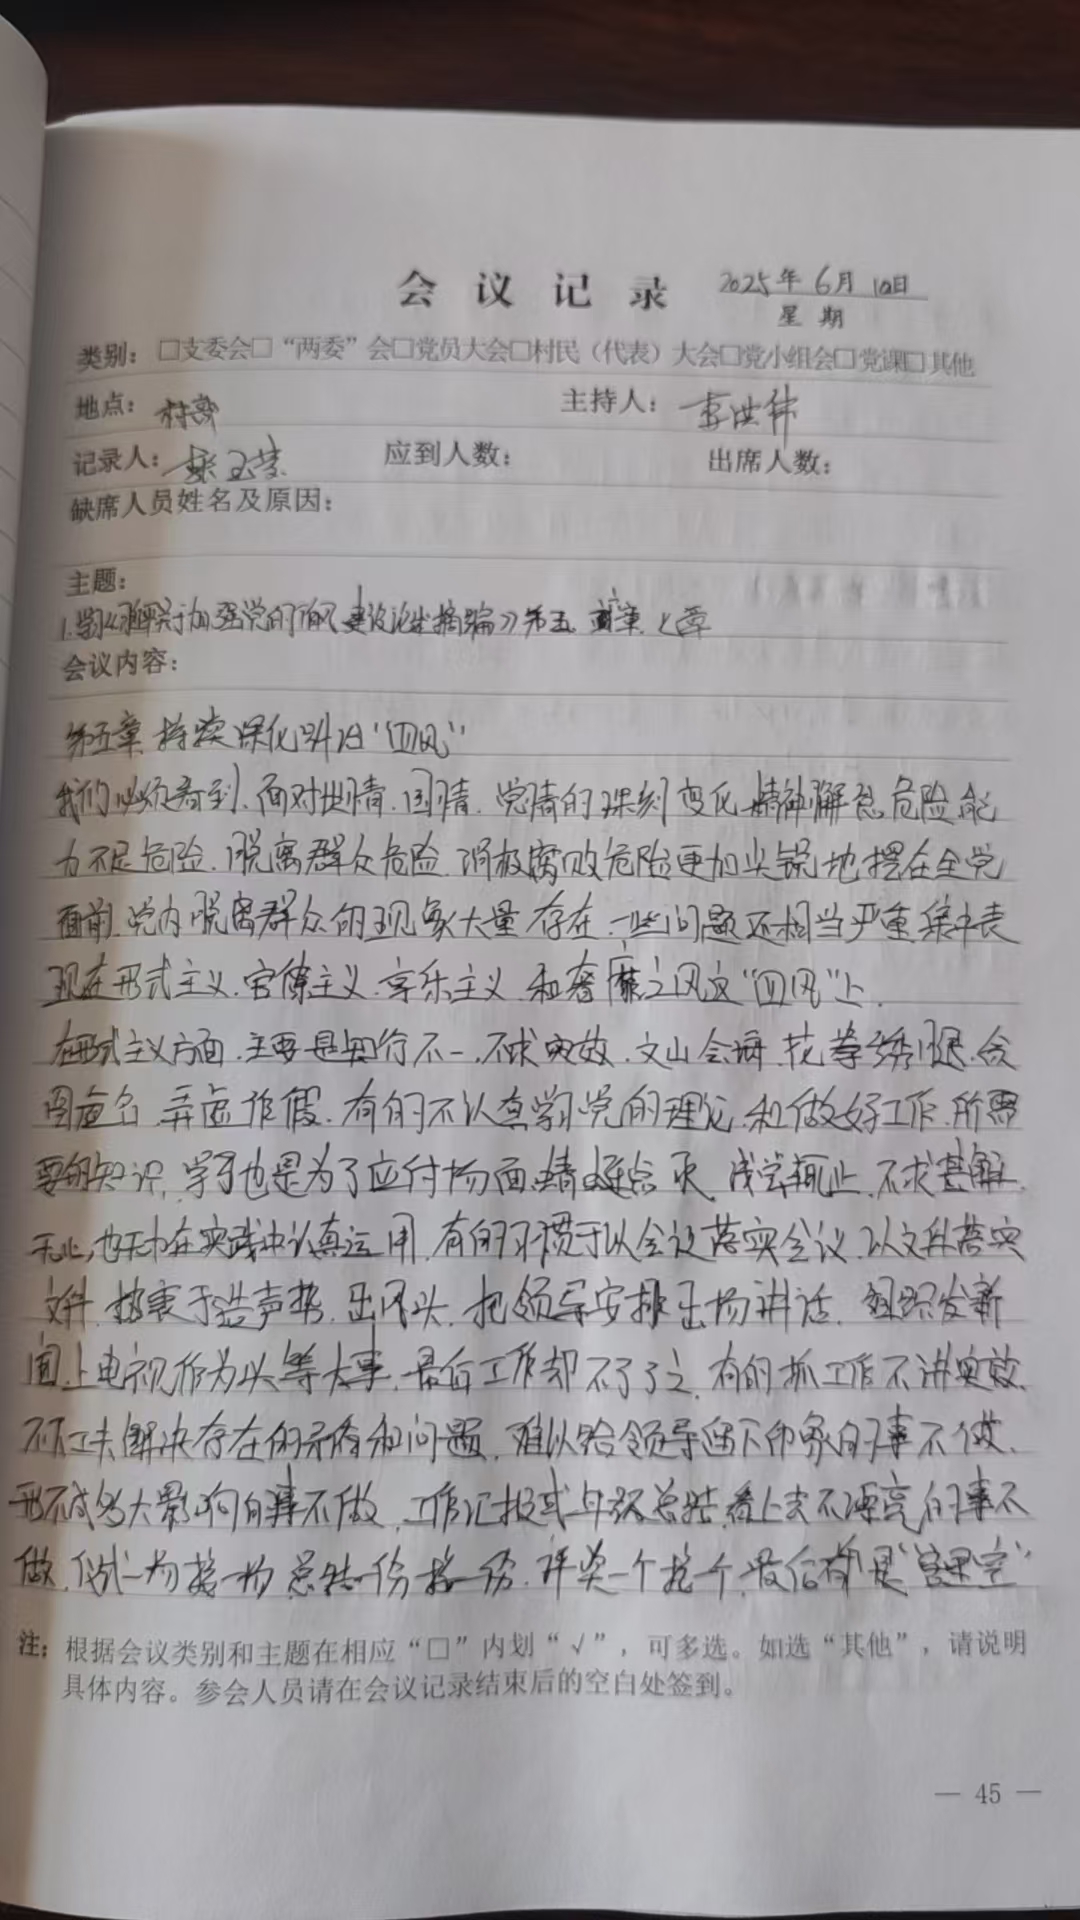 会议记录 2025年6月10日
星期
类别：□支委会□“两委”会□党员大会□村民（代表）大会□党小组会□党课□其他
地点：村部 主持人：李洪伟
记录人： 应到人数： 出席人数：
缺席人员姓名及原因：
主题：
1.学《习 关于加强党的作风建设论述摘编》第五 章、七章
会议内容：
第五章 持续深化纠治“四风”
我们必须看到、面对世情、国情、党情的深刻变化 精神懈怠危险能
力不足危险、脱离群众危险、消极腐败危险更加尖锐地摆在全党
面前、党内脱离群众的现象大量存在、一些问题还相当严重集中表
现在形式主义、官僚主义、享乐主义、和奢靡之风这“四风”上、
在形式主义方面、主要是知行不一、不求实效、文山会海、花拳绣腿、贪
图虚名、弄虚作假、有的不认真学习党的理论、和做好工作、所需
要的知识、学习也是为了应付场面、蜻蜓点水、浅尝辄止、不求甚解、
无心，也无力在实践中认真运用、有的习惯于以会议落实会议、以文件落实
文件、热衷于造声势、出风头、把领导安排出场讲话、组织发新
闻、上电视作为头等大事、最后工作却不了了之、有的抓工作不讲实效、
不下工夫解决存在的矛盾和问题、难以给领导留下印象的事不做、
形不成多大影响的事不做、工作汇报或年终总结、看上去不漂亮的事不
做、仪式一场接一场 总结一份接一份、评奖一个接一个、最后都是“客里空”
注：根据会议类别和主题在相应“□”内划“√”，可多选。如选“其他”，请说明
具体内容。参会人员请在会议记录结束后的空白处签到。
— 45 —